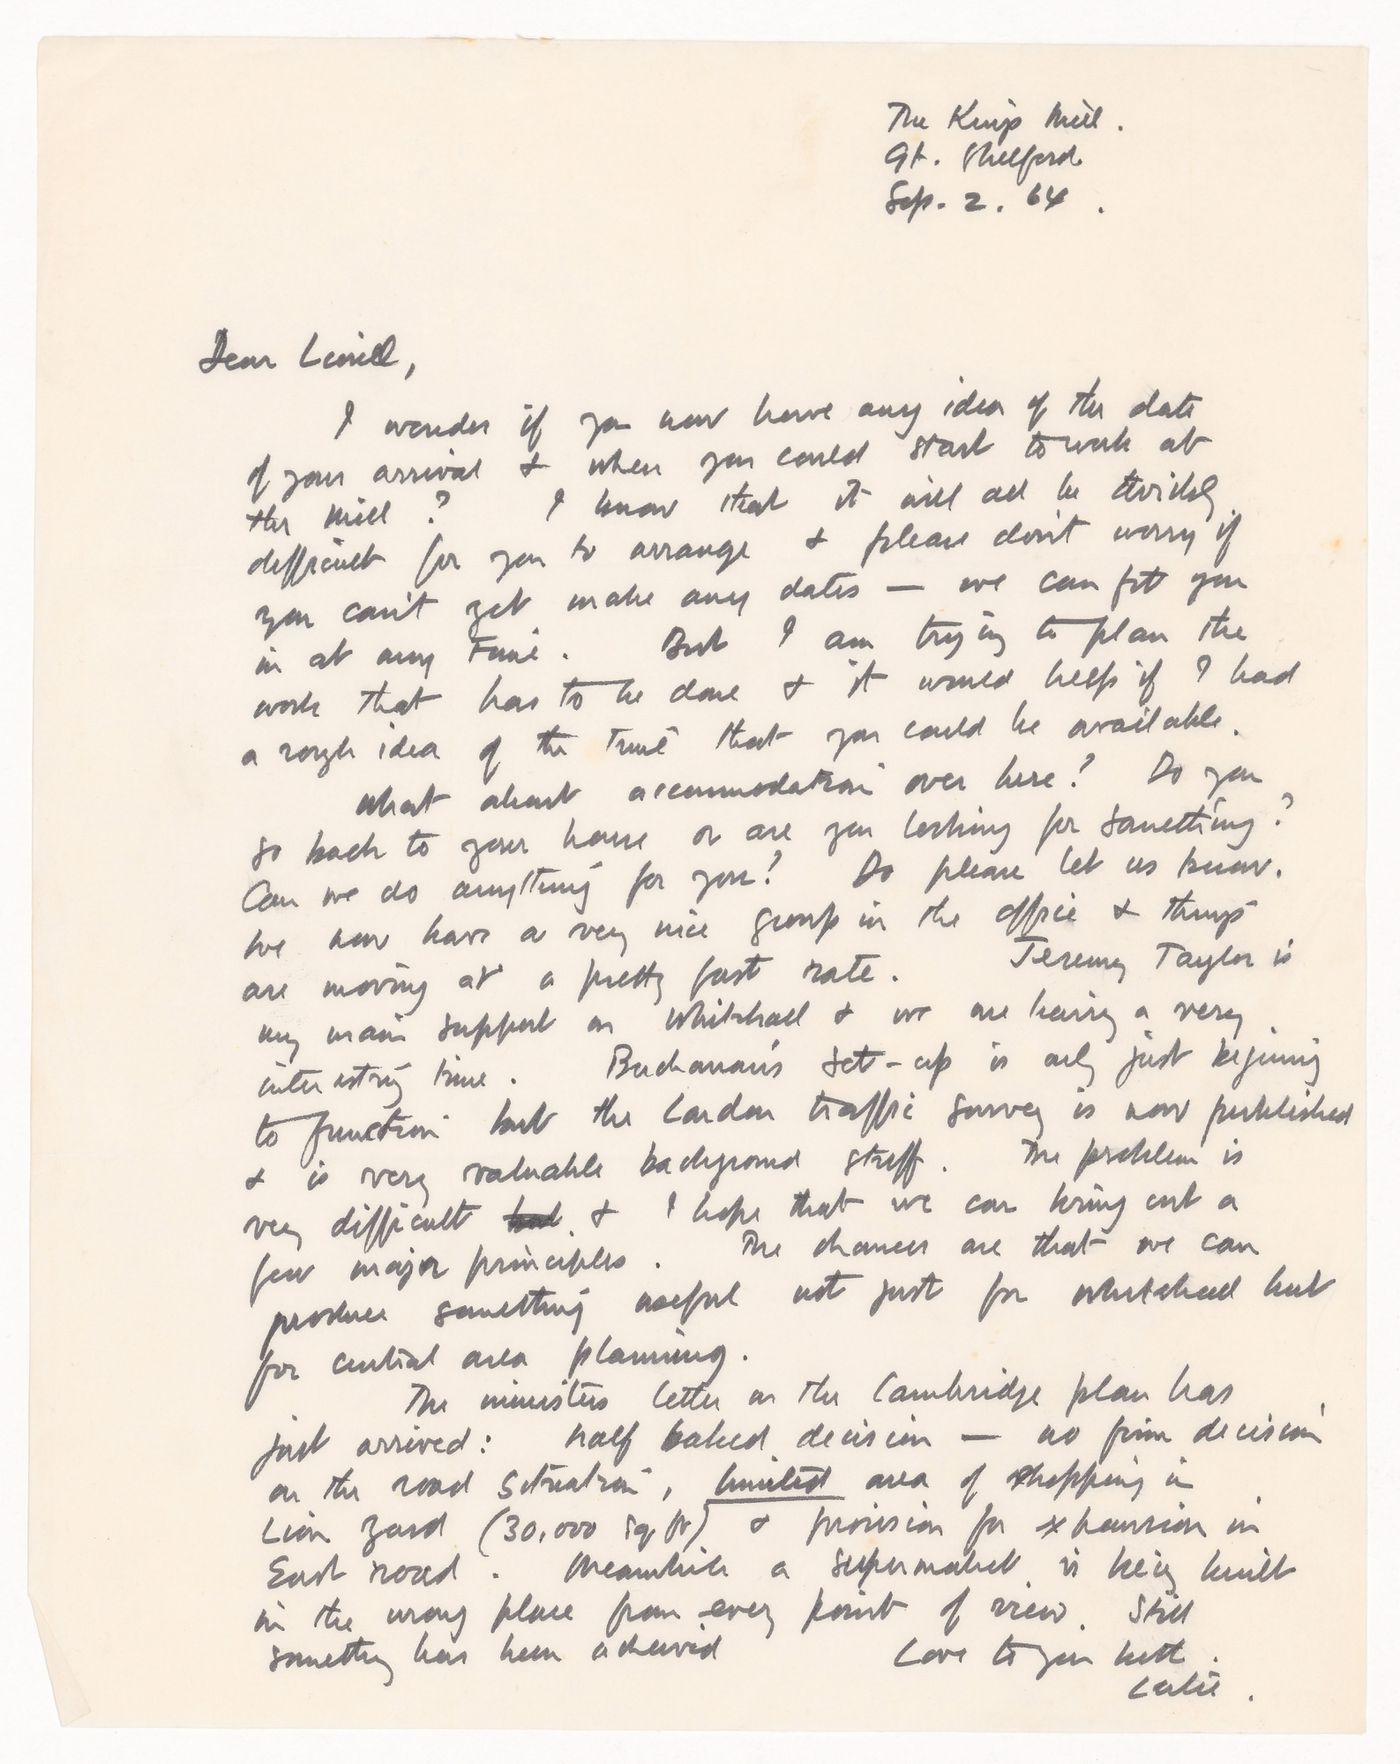 The Kings Mill.
Gt. Shelford
Sep. 2. 64.
Dear Lionel,
I wonder if you now have any idea of the date
of your arrival & when you could start to work at
the Mill? I know that it will all be
difficult for you to arrange & please don't worry if
you can't yet make any dates — we can fit you
in at any time. But I am trying to plan the
work that has to be done & it would help if I had
a rough idea of the time that you could be available.
What about accommodation over here? Do you
go back to your house or are you looking for something?
Can we do anything for you? Do please let us know.
We now have a very nice group in the office & things
are moving at a pretty fast rate. Jeremy Taylor is
my main support on Whitehall & we are having a very
interesting time. Buchanan's set-up is only just begining
to function but the London traffic survey is now published
& is very valuable background stuff. The problem is
very difficult & I hope that we can bring out a
few major principles. The chances are that we can
produce something useful not just for Whitehall but
for central area planning.
The ministers letter on the Cambridge plan has
just arrived: half baked decision — no firm decision
on the road situation, limited area of shopping in
Lion Yard (30,000 sq ft) & provision for expansion in
East road. Meanwhile a supermarket is being built
in the wrong place from every point of view. Still
something has been achieved Love to you both.
Leslie.